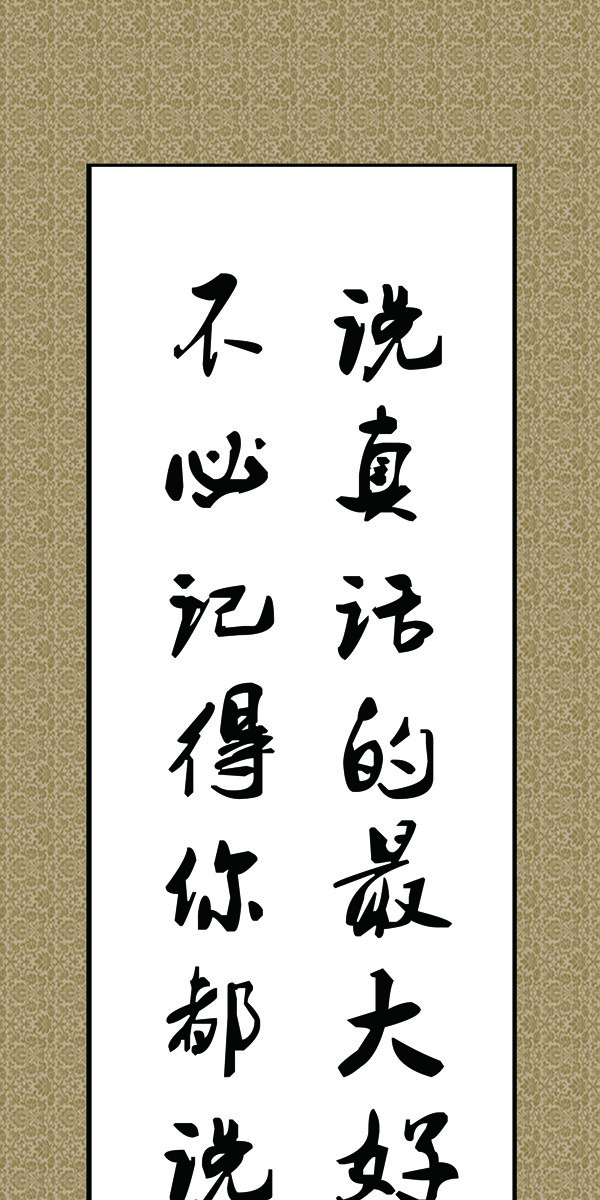 说真话的最大好
不必记得你都说